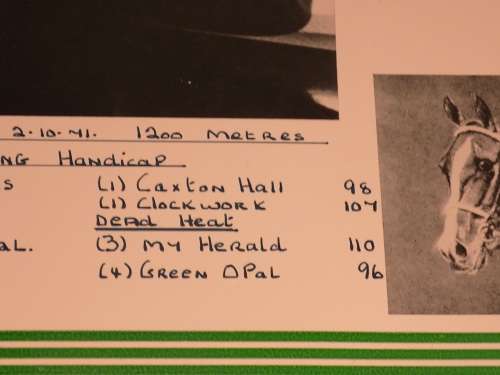 2·10·41. 1200 Metres
NG Handicap
S (1) Caxton Hall 98
(1) Clockwork 107
Dead Heat
AL. (3) My Herald 110
(4) Green Opal 96